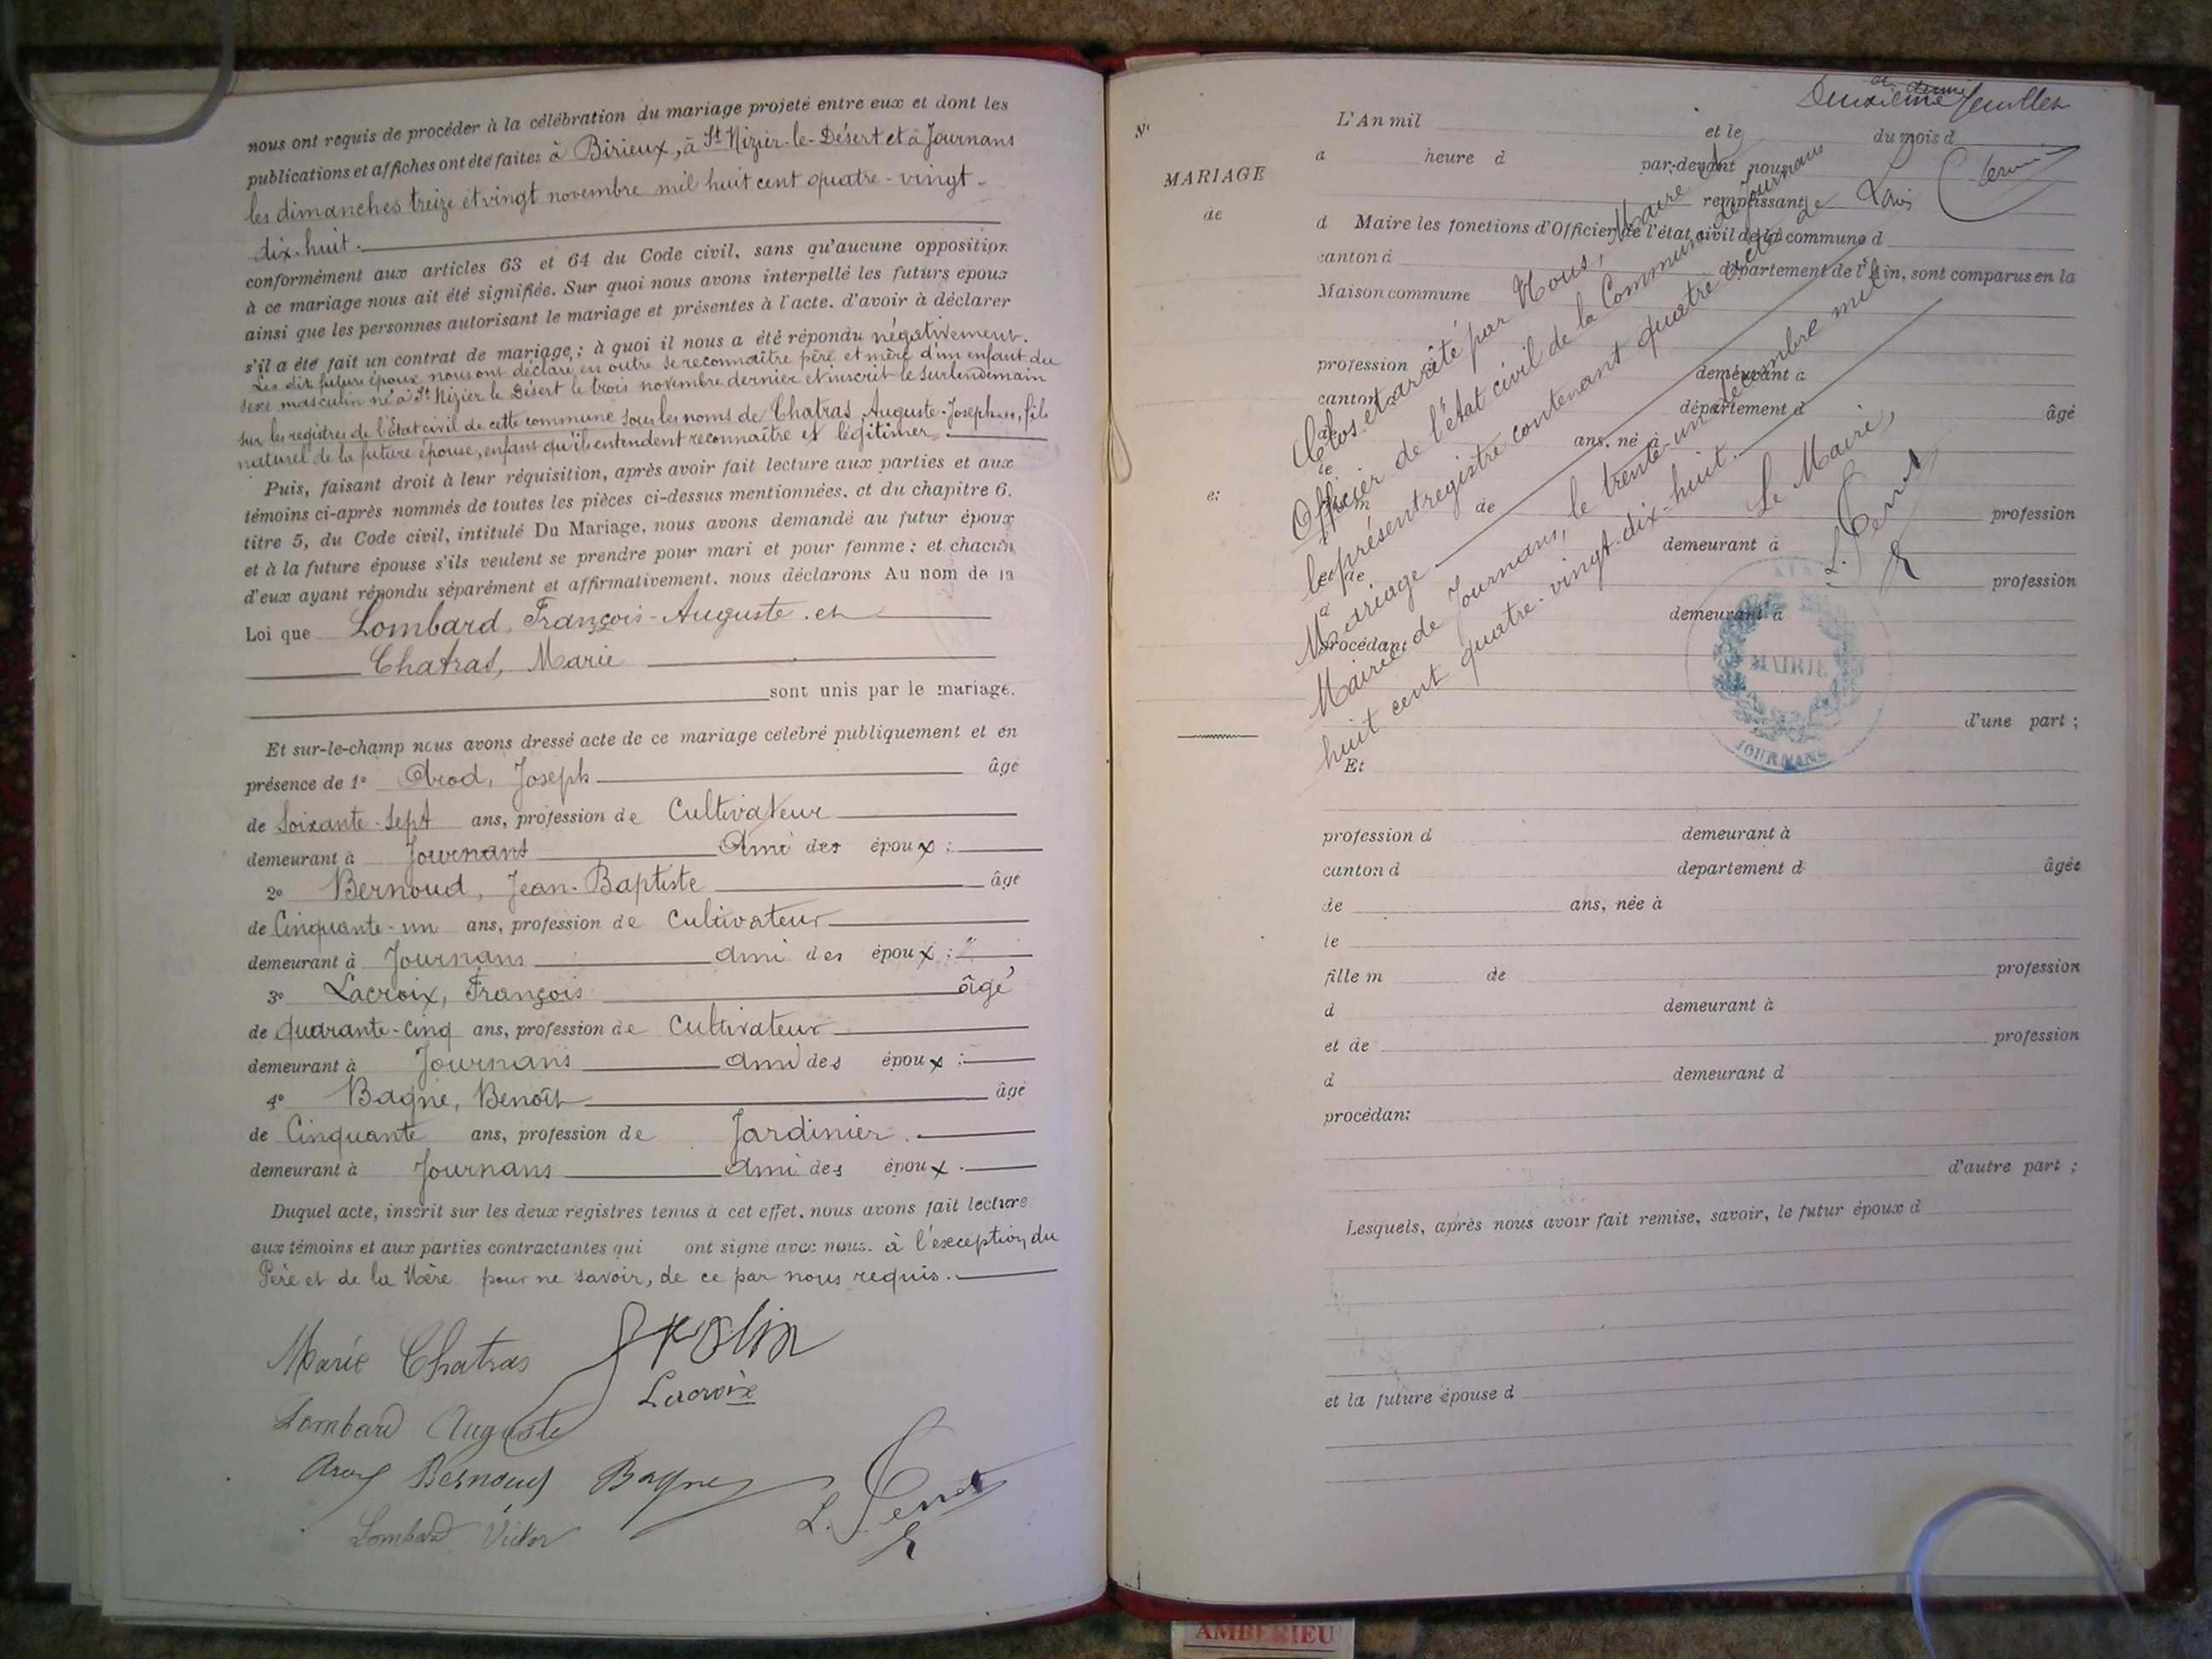 nous ont requis de procéder à la célébration du mariage projeté entre eux et dont les
publications et affiches ont été faites à Birieux, à St Nizier-le-Désert et à Journans
les dimanches treize et vingt novembre mil huit cent quatre-vingt-
dix-huit.
conformément aux articles 63 et 64 du Code civil, sans qu'aucune opposition
à ce mariage nous ait été signifiée. Sur quoi nous avons interpellé les futurs époux
ainsi que les personnes autorisant le mariage et présentes à l'acte. d'avoir à déclarer
s'il a été fait un contrat de mariage ; à quoi il nous a été répondu négativement.
Les dits futurs époux nous ont déclaré en outre se reconnaître père et mère d'un enfant du
sexe masculin né à St Nizier le Désert le trois novembre dernier et inscrit le surlendemain
sur les registres de l'Etat civil de cette commune sous les noms de Chatras Auguste-Joseph, fils
naturel de la future épouse, enfant qu'ils entendent reconnaître et légitimer.
Puis, faisant droit à leur réquisition, après avoir fait lecture aux parties et aux
témoins ci-après nommés de toutes les pièces ci-dessus mentionnées. et du chapitre 6.
titre 5, du Code civil, intitulé Du Mariage, nous avons demandé au futur époux
et à la future épouse s'ils veulent se prendre pour mari et pour femme : et chacun
d'eux ayant répondu séparément et affirmativement. nous déclarons Au nom de la
Loi que Lombard, François-Auguste et
Chatras, Marie
sont unis par le mariage.
Et sur-le-champ nous avons dressé acte de ce mariage célébré publiquement et en
présence de 1° Arod, Joseph âgé
de Soixante-sept ans, profession de Cultivateur
demeurant à Journans Ami des époux :
2° Bernoud, Jean-Baptiste âgé
de Cinquante-un ans, profession de Cultivateur
demeurant à Journans ami des époux :
3° Lacroix, François âgé
de quarante-cinq ans, profession de Cultivateur
demeurant à Journans ami des époux :
4° Bagne, Benoît âgé
de Cinquante ans, profession de Jardinier.
demeurant à Journans ami des époux.
Duquel acte, inscrit sur les deux registres tenus à cet effet, nous avons fait lecture
aux témoins et aux parties contractantes qui ont signé avec nous. à l'exception du
Père et de la Mère pour ne savoir, de ce par nous requis.
Marie Chatras
Lacroix
Lombard Auguste
Arod Bernoud Bagne
Lombard Victor
Deuxième feuillet
N°
MARIAGE
de
L'An mil et le du mois d
à heure d par-devant nous
remplissant
d Maire les fonctions d'Officier de l'état civil de la commune d
canton d département de l'Ain, sont comparus en la
Maison commune
profession d demeurant à
canton département d âgé
de ans, né à
le
fils m de profession
demeurant à
et de profession
d demeurant à
procédant
d'une part ;
Et
profession d demeurant à
canton d département d âgée
de ans, née à
le
fille m de profession
d demeurant à
et de profession
d demeurant d
procédan:
d'autre part ;
Lesquels, après nous avoir fait remise, savoir, le futur époux d
et la future épouse d
Clos et arrêté par Nous, Maire et
Officier de l'état civil de la Commune de Journans
le présent registre contenant quatre actes de
Mariage
Mairie de Journans, le trente-un décembre mil
huit cent quatre-vingt-dix-huit.
Le Maire,
AIN
MAIRIE
JOURNANS
AMBERIEU